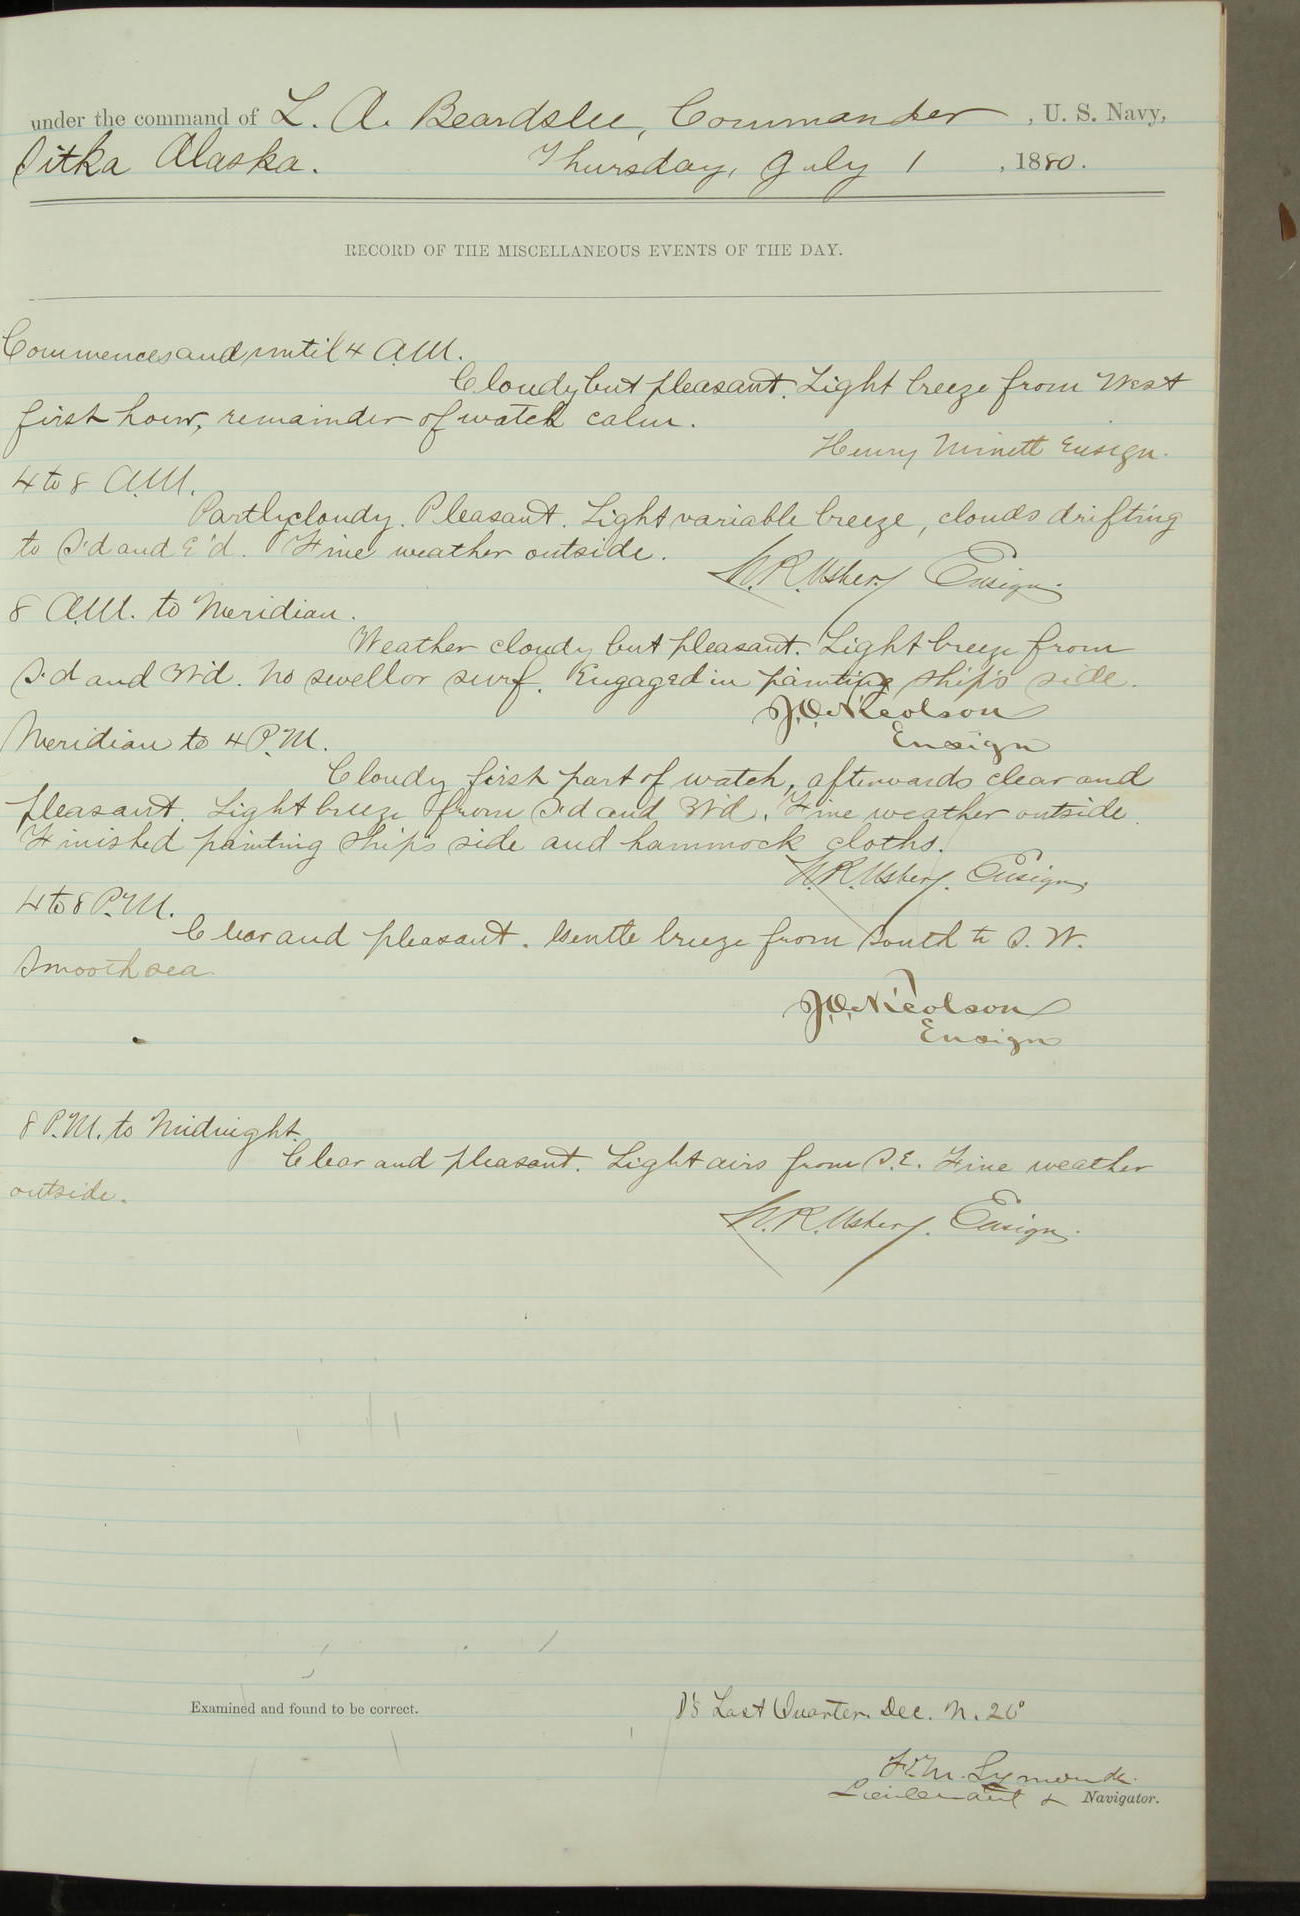 under the command of L. A. Beardslee, Commander, U. S. Navy,
Sitka Alaska. Thursday, July 1, 1880.
RECORD OF THE MISCELLANEOUS EVENTS OF THE DAY.
Commences and until 4 A.M.
Cloudy but pleasant. Light breeze from West
first hour, remainder of watch calm.
Henry Minett Ensign.
4 to 8 A.M.
Partly cloudy. Pleasant. Light variable breeze, clouds drifting
to S'd and E'd. Fine weather outside.
N.R. Usher, Ensign.
8 A.M. to Meridian.
Weather cloudy but pleasant. Light breeze from
S'd and W'd. No swell or surf. Engaged in painting ship's side.
J.O. Nicolson
Ensign
Meridian to 4 P.M.
Cloudy first part of watch, afterwards clear and
pleasant. Light breeze from S'd and W'd. Fine weather outside.
Finished painting ship's side and hammock cloths.
N.R. Usher. Ensign.
4 to 8 P.M.
Clear and pleasant. Gentle breeze from South to S. W.
Smooth sea
J.O. Nicolson
Ensign
8 P.M. to Midnight.
Clear and pleasant. Light airs from S.E. Fine weather
outside.
N.R. Usher. Ensign.
Examined and found to be correct.
Last Quarter. Dec. N. 20°
F.M. Symonds.
Lieutenant & Navigator.